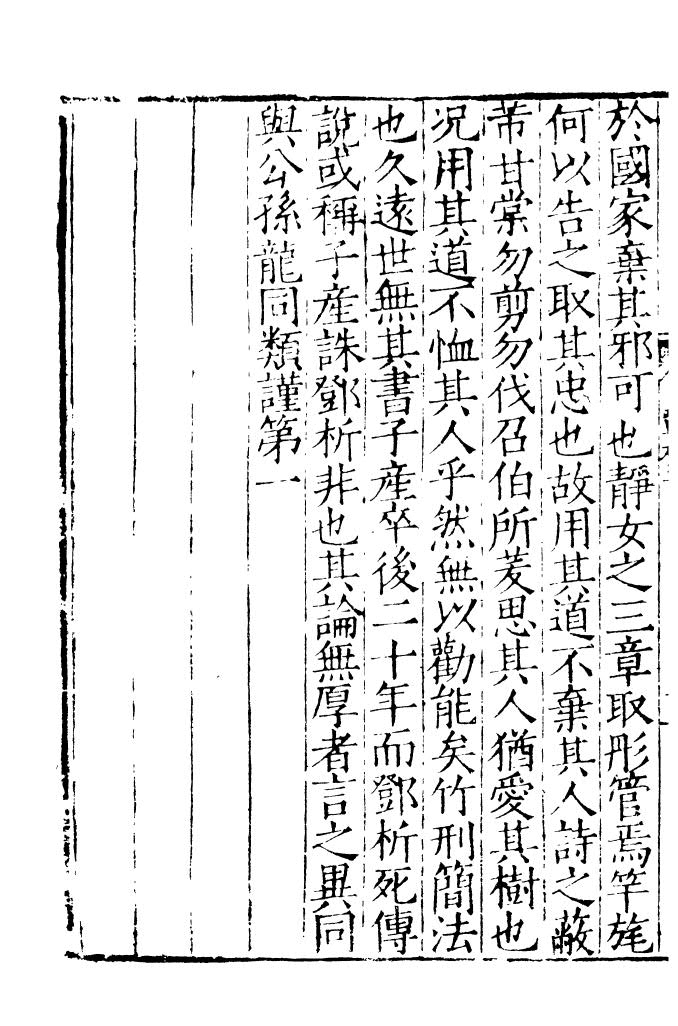 於國家棄其邪可也靜女之三章取彤管焉竿旄
何以告之取其忠也故用其道不棄其人詩之蔽
芾甘棠勿剪勿伐召伯所茇思其人猶愛其樹也
况用其道不恤其人乎然無以勸能矣竹刑簡法
也久遠世無其書子產卒後二十年而鄧析死傳
說或稱子產誅鄧析非也其論無厚者言之異同
與公孫龍同類謹第一